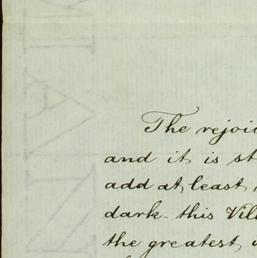 The rejoi
and it is st
add at least
dark - this Vil
the greatest